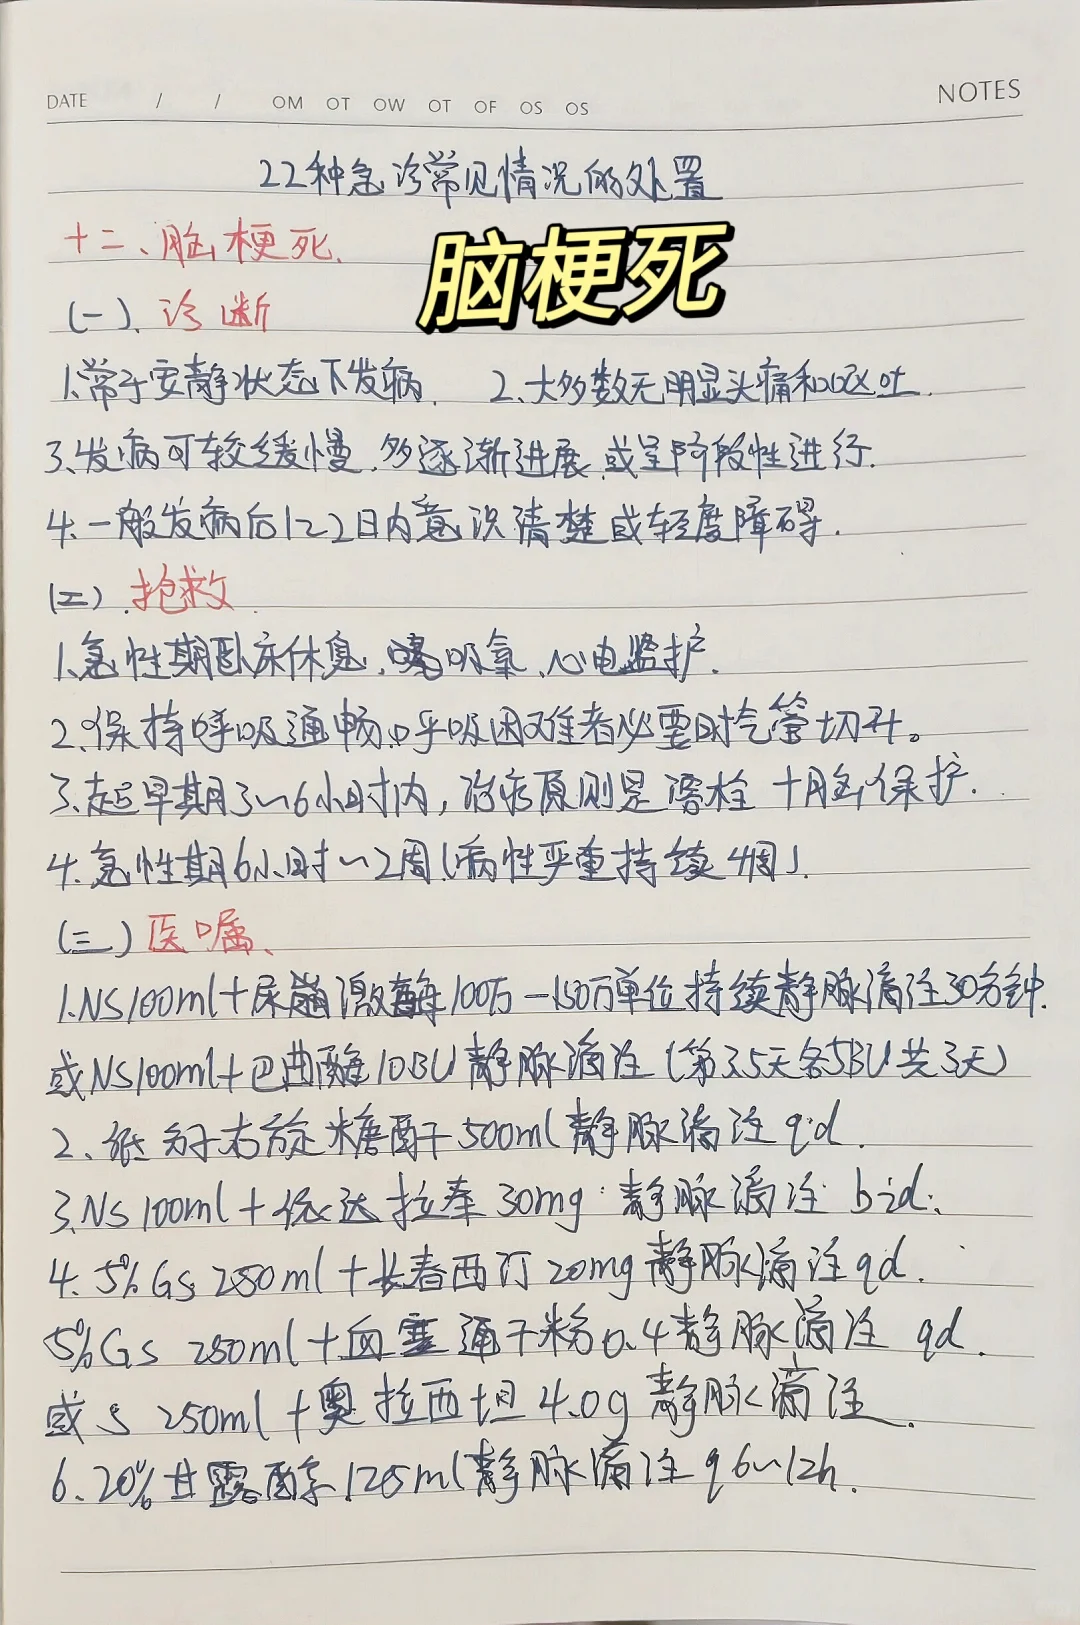 DATE / / OM OT OW OT OF OS OS NOTES
22种急诊常见情况的处置
十二、脑梗死.
脑梗死
(一).诊断
1.常于安静状态下发病. 2.大多数无明显头痛和呕吐.
3.发病可较缓慢.多逐渐进展.或呈阶段性进行.
4.一般发病后1~2日内意识清楚或轻度障碍.
(二).抢救.
1.急性期卧床休息.吸氧、心电监护.
2.保持呼吸通畅.呼吸困难者必要时气管切开。
3.起早期3~6小时内,治疗原则是溶栓+脑保护.
4.急性期6小时~2周(病性严重持续4周).
(三)医嘱、
1.NS100ml+尿激酶100万-150万单位持续静脉滴注30分钟.
或NS100ml+巴曲酶10BU静脉滴注(第3.5天各5BU共3天)
2、低分子右旋糖酐500ml静脉滴注qd.
3.NS100ml+依达拉奉30mg静脉滴注bid;
4.5%Gs 250ml+长春西汀20mg静脉滴注qd.
5%Gs 250ml+血塞通干粉0.4静脉滴注 qd.
或s 250ml+奥拉西坦4.0g静脉滴注.
6.20%甘露醇125ml静脉滴注q6~12h.